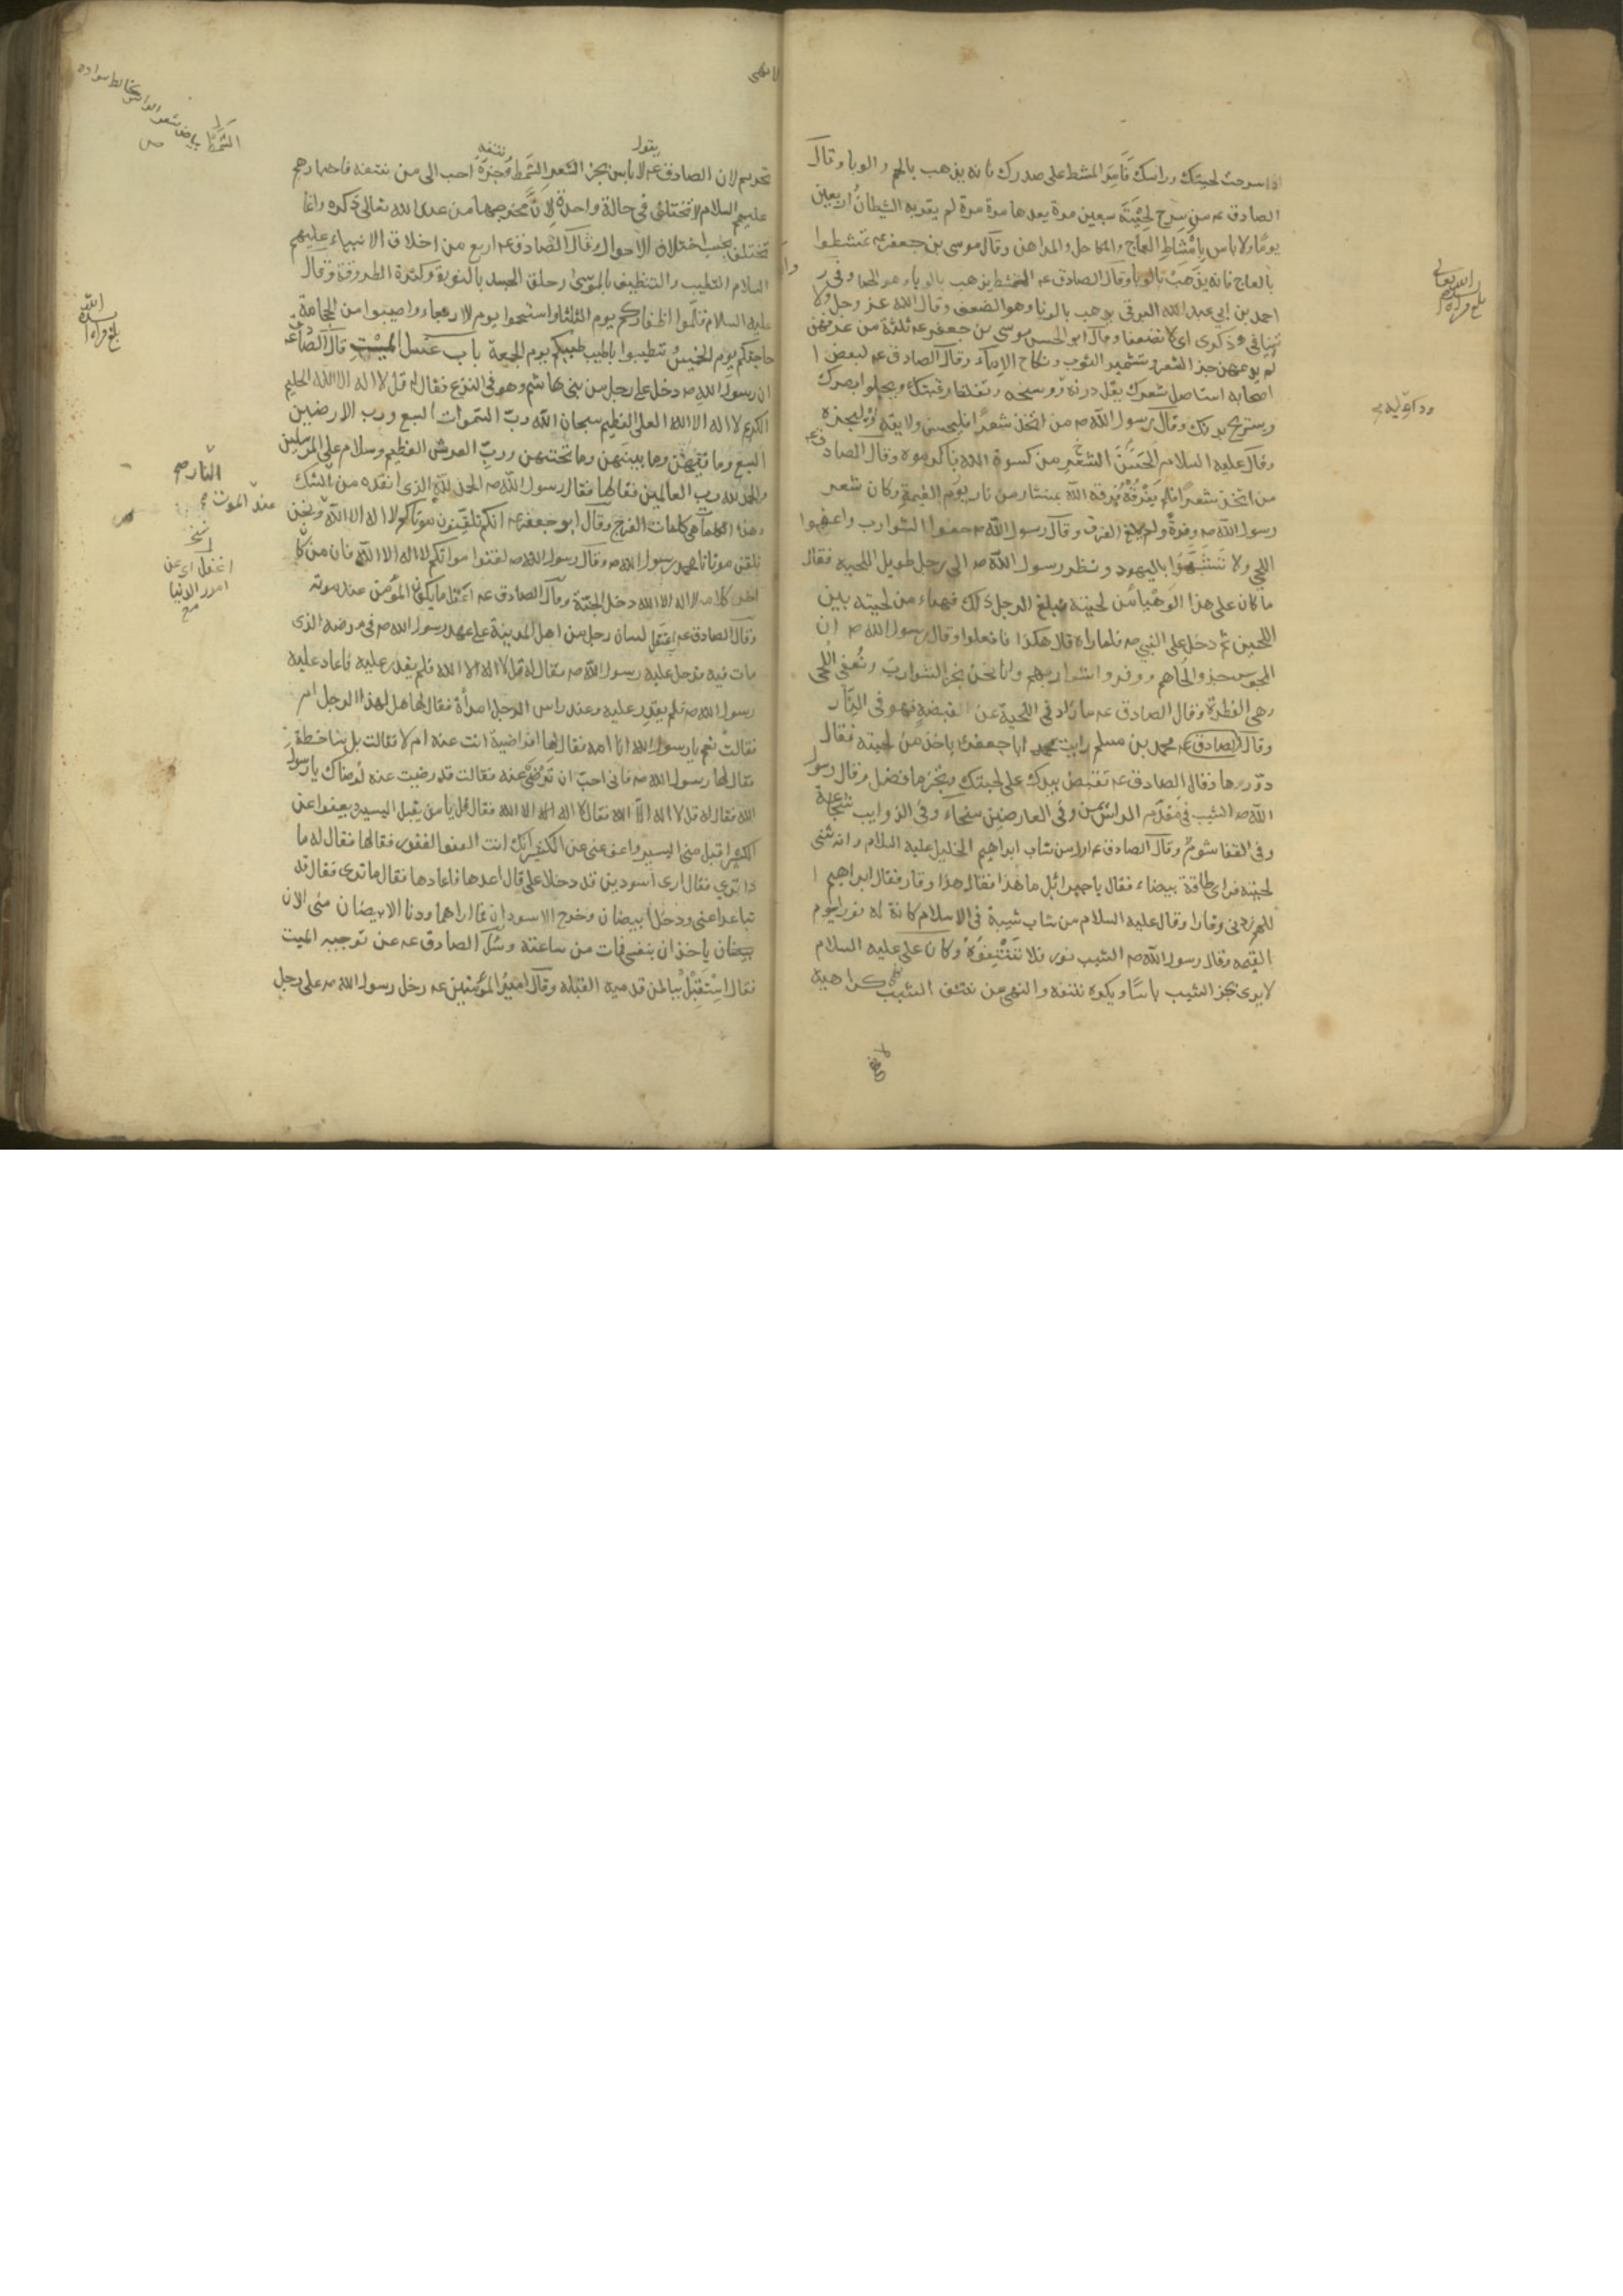 اذا سرحت لحيتك وراسك فَامِرَّ المشط على صدرك فانه يذهب بالهم والوبا وقال
الصادق عه من سرح لِحْيَتَه سبعين مرة يعدها مرة مرة لم يقربه الشيطان اربعين
يومًا ولا باس بِامْشَاطِ العاج والمكاحل والمداهن وقال موسى بن جعفر عه تمشطوا
بالعاج فانه يذهب بالوبا وقال الصادق عه المشط يذهب بالوبا وهو الحما وفى ر
احمد بن ابي عبد الله البرقى يذهب بالونا وهو الضعف وقال الله عز وجل ولا
تنيا فى ذكرى اى لا تضعفا وقال ابو الحسن موسى بن جعفر عه ثلثة من عرفهن
لم يدعهن جز الشعر وتشمير الثوب ونكاح الإماء وقال الصادق عه لبعض ا
اصحابه استاصل شعرك يقل درنه ودوابه ووسخه وتغلظ رقبتك ويجلوا بصرك
ويستريح بدنك وقال رسول الله صه من اتخذ شعرًا فليحسن ولايته او ليجزه
وقال عليه السلام الحَسَنُ الشعْرِ من كسوة الله فاكرموه وقال الصادق عه
من اتخذ شعرًا فلم يَفْرُقْهُ فرقه الله بمنشار من نار يوم القيمة وكان شعر
رسول الله صه وفرةً ولم يبلغ الفرق وقال رسول الله صه حفوا الشوارب واعفوا
اللحى ولا تَتَشَبَّهُوا باليهود ونظر رسول الله صه الى رجل طويل اللحيه فقال
ما كان على هذا لو هَيَّأ من لحيته فبلغ الرجل ذلك فهياء من لحيته بين
اللحيين ثم دخل على النبى صه فلما راه قال هكذا فافعلوا وقال رسول الله صه ان
المجوس جزوا لحاهم ووفروا شواربهم وانا نحن نجز الشوارب ونُعفى اللحى
وهى الفطرة وقال الصادق عه ما زاد فى اللحية عن القبضة فهو فى النار
وقال الصادق عه محمد بن مسلم رايت محمد ابا جعفر عه ياخذ من لحيته فقال
دوّروها وقال الصادق عه تقبض بيدك على لحيتك وتجز ما فضل وقال رسول
الله صه الشيب فى مقدّم الراس يمن وفى العارضين سخآء وفى الذوايب شجاعة
وفى القفا شومٌ وقال الصادق عه اول من شاب ابراهيم الخليل عليه السلام وانه ثنى
لحيته فراى طاقة بيضاء فقال يا جبرائيل ما هذا فقال هذا وقار فقال ابراهيم ا
اللهم زدنى وقارا وقال عليه السلام من شاب شيبة فى الاسلام كانة له نورا يوم
القيمه وقال رسول الله صه الشيب نور فلا تَنْتِفُوهُ وكان على عليه السلام
لا يرى بجز الشيب باسًا ويكره نتفه والنهى عن نتف الشيب نهى كراهية
لا نهى
بلغ قراءة ايده الله تعالى
لا نهى
يقول
نتفه
تحريم لان الصادق عه لا باس بجز الشعر الشَمِط وَجزّهُ احب الى من نتفه فاخبارهم
عليهم السلام لا تختلف فى حالة واحدة لِانَّ مخرجها من عند الله تعالى ذكره وانما
تختلف بحسب اختلاف الأحوال وقال الصادق عه اربع من اخلاق الانبياء عليهم
السلام التطيب والتنظيف بالموسى وحلق الجسد بالنورة وكثرة الطروقة وقال
عليه السلام قلّموا اظفاركم يوم الثلثا واستحموا يوم لاربعاء واصيبوا من الحجامة
حاجتكم يوم الخميس وتطيبوا باطيب طيبكم يوم الجمعة باب غسل الميت قال الصادق عه
ان رسول الله صه دخل على رجل من بنى هاشم وهو فى النزع فقال له قل لا اله الا الله الحليم
الكريم لا اله الا الله العلى العظيم سبحان الله ربّ السموات السبع ورب الارضين
السبع وما فيهن وما بينهن وما تحتهن وربِّ العرش العظيم وسلام على المرسلين
والحمد لله رب العالمين فقالها فقال رسول الله صه الحمد للّه الذى انقذه من النار
وهذه الكلمات هى كلمات الفرج وقال ابو جعفر عه انكم تلقنون موتاكم لا اله الا اللّه ونحن
نلقن موتانا محمد رسول الله صه وقال رسول الله صه لقنوا مواتكم لا اله الا اللّه فان من كان
اخر كلامه لا اله الا الله دخل الجنّة وقال الصادق عه اعتقل ما يكون المؤمن عند موته
وقال الصادق عه اعتقل لسان رجل من اهل المدينة على عهد رسول الله صه فى مرضه الذى
مات فيه فدخل عليه رسول الله صه فقال له قل لا اله الا الله فلم يقدر عليه فاعاد عليه
رسول الله صه فلم يقدر عليه وعند راس الرجل امرأة فقال لها هل لهذا الرجل ام
فقالت نعم يا رسول الله انا امه فقال لها افراضية انت عنه ام لا فقالت بل ساخطة
فقال لها رسول الله صه فانى احبّ ان ترضى عنه فقالت قد رضيت عنه لرضاك يا رسول
الله فقال له قل لا اله الا الله فقال لا اله الا الله فقال قل يا من يقبل اليسير ويعفوا عن
الكثير اقبل منى اليسير واعف عنى عن الكثير انك انت العفو الغفور فقالها فقال له ما
ذا ترى فقال ارى اسودين قد دخلا على قال اعدها فاعادها فقال ما ترى فقال قد
تباعدا عنى ودخل ابيضان وخرج الاسودان فما اراهما ودنا الابيضان منى الان
ياخذان بنفسى فمات من ساعته وسُئل الصادق عه عن توجيه الميت
فقال اسْتَقْبِلْ بباطن قدميه القبلة وقال امير المؤمنين عه دخل رسول الله صه على رجل
الشمط بياض شعر الراس يخالط سواده
ص
بلغ قراءة ايده الله
النار صح
عند الموت
اغفل اى عن
امور الدنيا